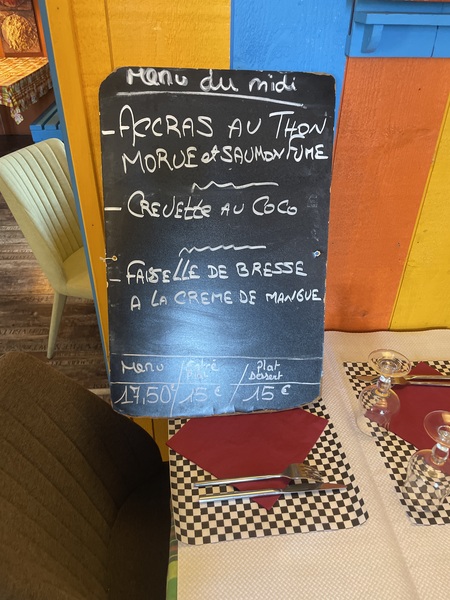 Menu du midi
- ACCRAS AU THON
MORUE et SAUMON FUME
- CREVETTE AU COCO
- FAISELLE DE BRESSE
A LA CREME DE MANGUE
Menu / Entré / Plat
Dessert
17,50€ / 15€ / 15€